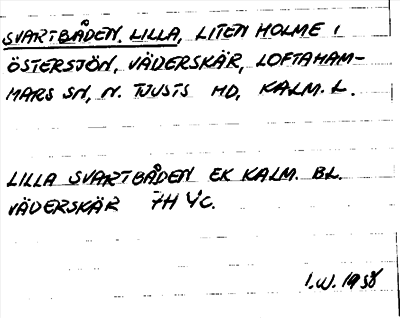 SVARTBÅDEN, LILLA, LITEN HOLME I
ÖSTERSJÖN, VÄDERSKÄR, LOFTAHAM-
MARS SN, N. TJUSTS HD, KALM. L.
LILLA SVARTBÅDEN EK KALM. BL.
VÄDERSKÄR 7H
I.W. 1938